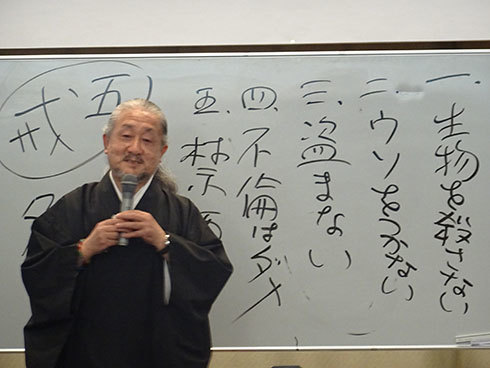 一.生物を殺さない
二.ウソをつかない
三.盗まない
四.不倫はダメ
五.禁酒
五戒